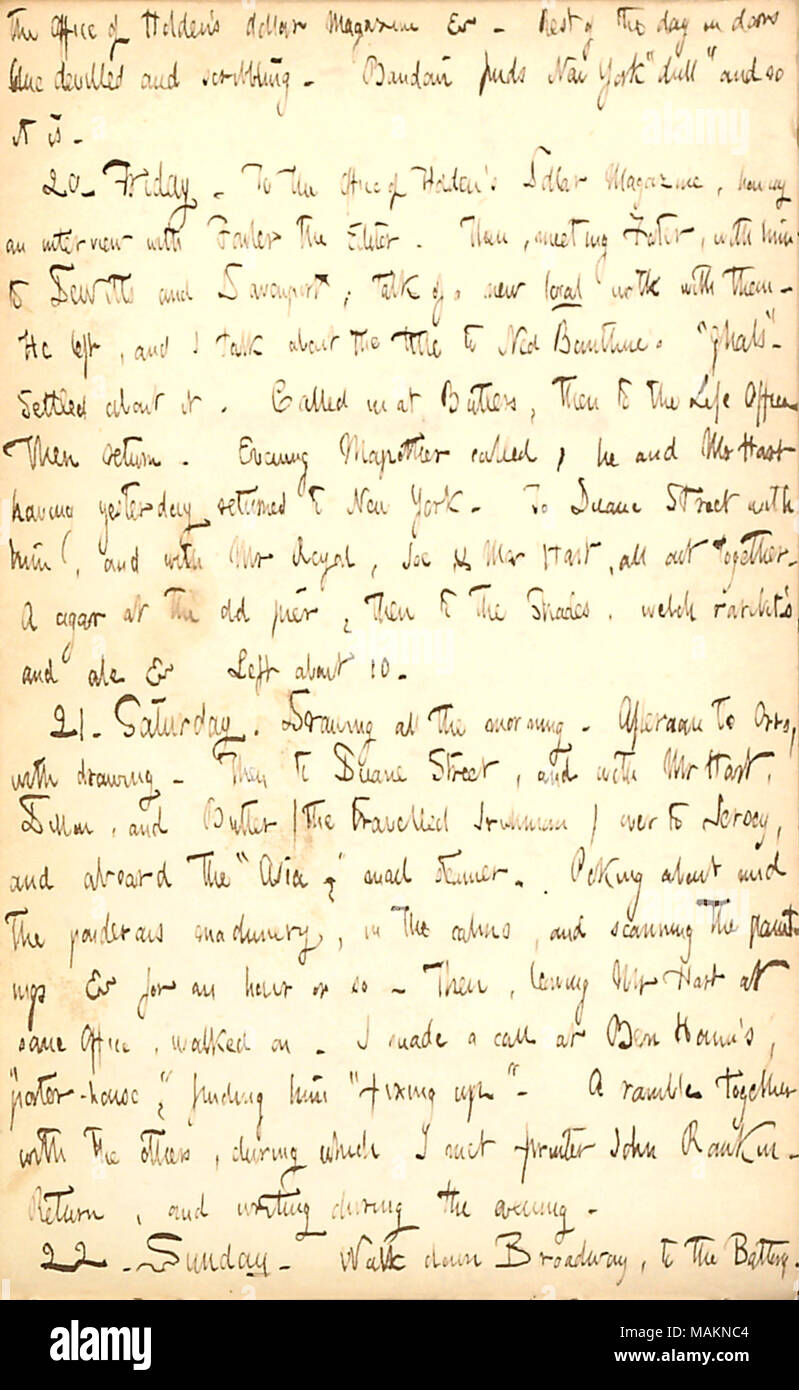 the Office of Holden's dollar Magazine &c - Rest of the day in doors
blue devilled and scribbling - Baudoin finds New York "dull" and so
it is -
20 - Friday - To the Office of Holden's Dollar Magazine, having
an interview with Fowler the Editor. Then, meeting Foster, with him
to Dewitts and Davenport, talk of a new local work with them -
He left, and I talk about the title to Ned Buntline's "Ghals" -
Settled about it. Called in at Butlers, then to the Life Office
Then return. Evening Mapother called, he and Mr Hart
having yesterday returned to New York - To Duane Street with
him, and with Mr Royal, Joe & Mr Hart, all out together -
A cigar at the old pier, then to the Shades, welch rarebit's,
and ale &c Left about 10 -
21 - Saturday. Drawing all the morning - Afternoon to Orrs,
with drawing - Then to Duane Street, and with Mr Hart,
Dillon, and Butler (the travelled Irishman) over to Jersey,
and aboard the "Asia," mail steamer. Poking about amid
the ponderous machinery, in the cabins, and scanning the paint
ings &c for an hour or so - Then, leaving Mr Hart at
some Office, walked on - I made a call at Ben
"porter-house," finding him "fixing up" - A ramble together
with the others, during which I met printer John Rankin -
Return, and writing during the evening -
22 - Sunday - Walk down Broadway, to the Battery.
alamy
Image ID: MAKNC4
www.alamy.com